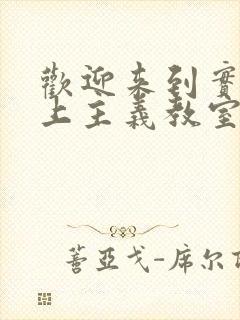 歡迎来到實
上主義教室
蓄亞戈-席尔